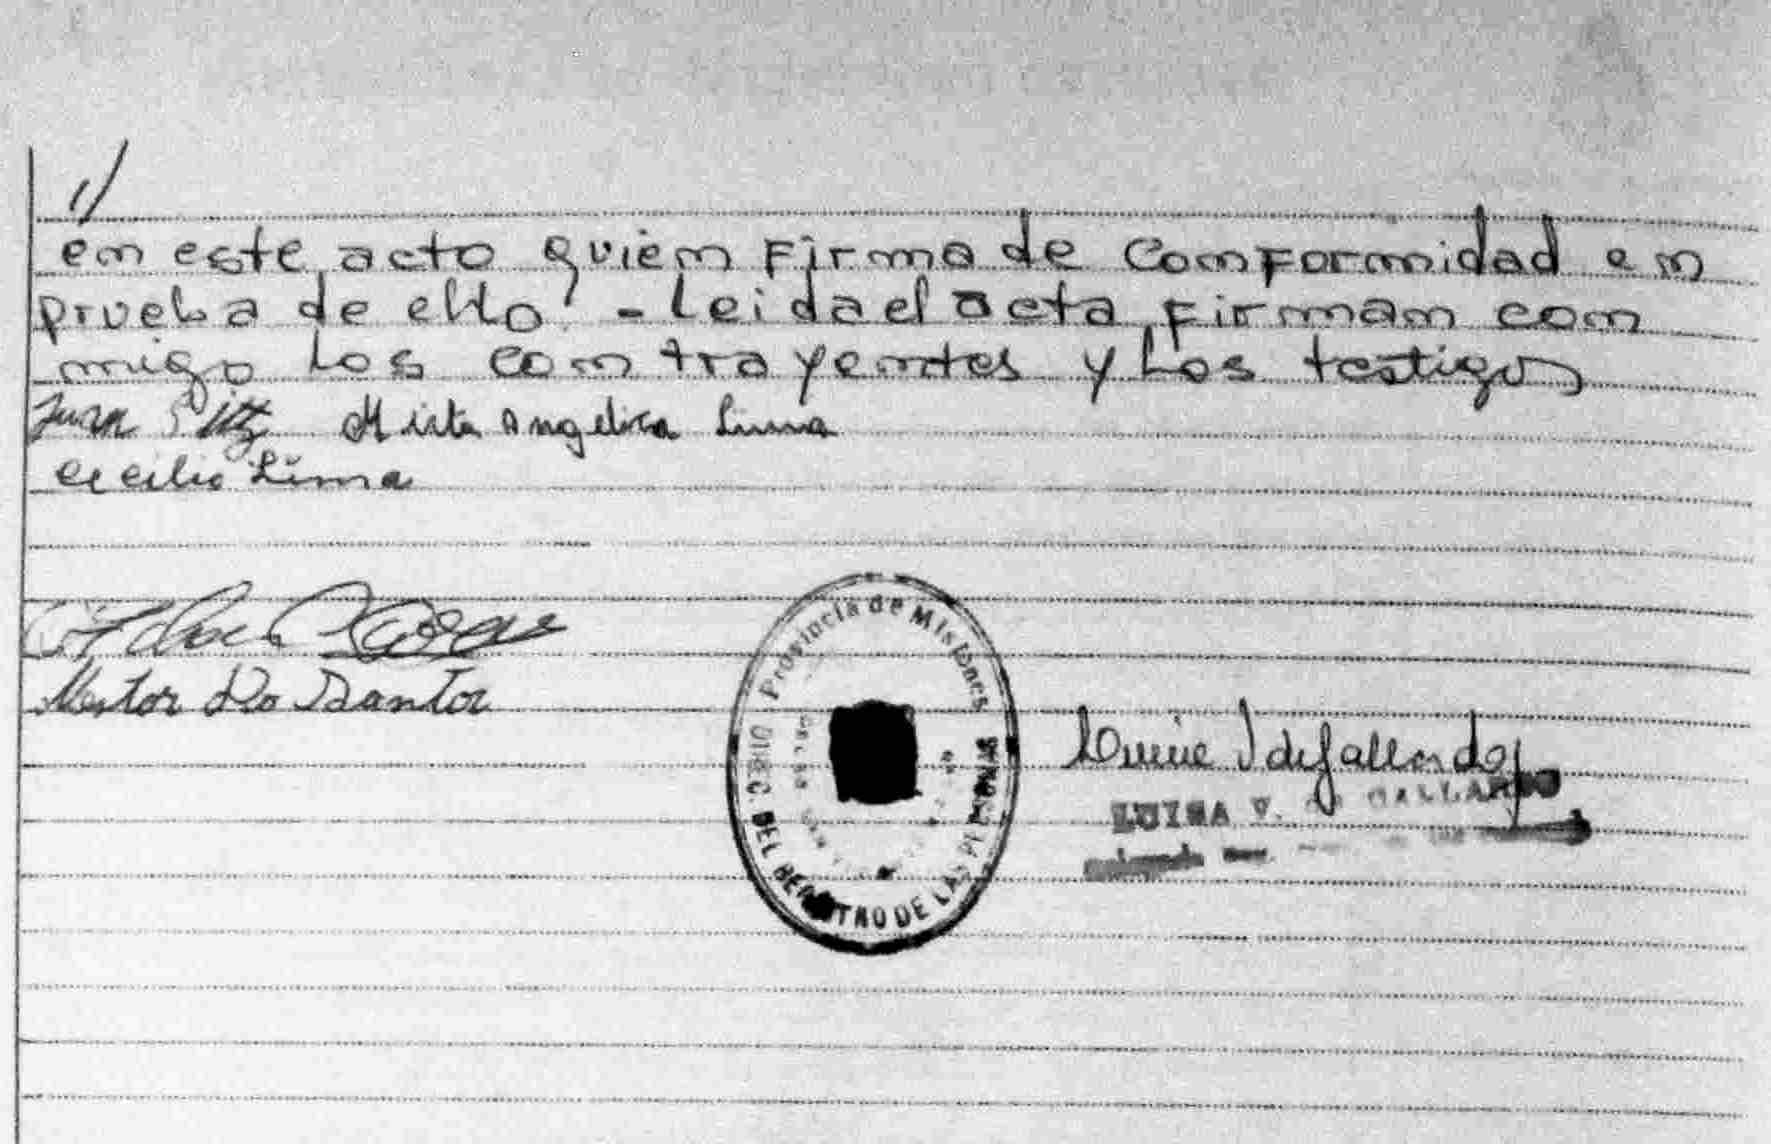 //
en este acto quien firma de conformidad en
prueba de ello. - Leida el acta, firman con
migo los contrayentes y los testigos
Juan
Mirta Angelica Lima
Cecilio Lima
Nestor Do Santos
Provincia de Misiones
DIREC. DEL REGISTRO DE LAS PERSONAS
de Gallardo
LUISA V. DE GALLARDO